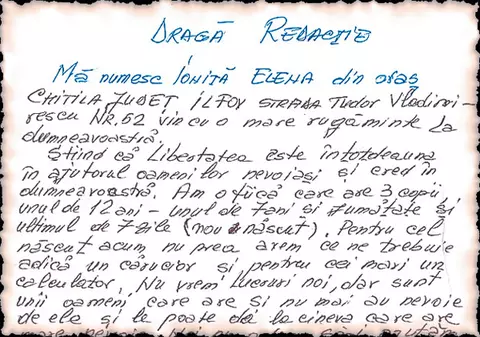 DRAGĂ REDACȚIE
Mă numesc IONIȚĂ ELENA din oraș
CHITILA JUDEȚ ILFOV STRADA Tudor Vladimi-
rescu NR.62 vin cu o mare rugăminte la
dumneavoastră.
Știind că Libertatea este întotdeauna
în ajutorul oamenilor nevoiași și cred în
dumneavoastră. Am o fiică care are 3 copii
unul de 12 ani - unul de 7 ani și jumătate și
ultimul de 7 zile (nou născut). Pentru cel
născut acum nu prea avem ce ne trebuie
adică un cărucior și pentru cei mari un
calculator. Nu vrem lucruri noi, dar sunt
unii oameni care are și nu mai au nevoie
de ele și le poate da la cineva care are
mare nevoie